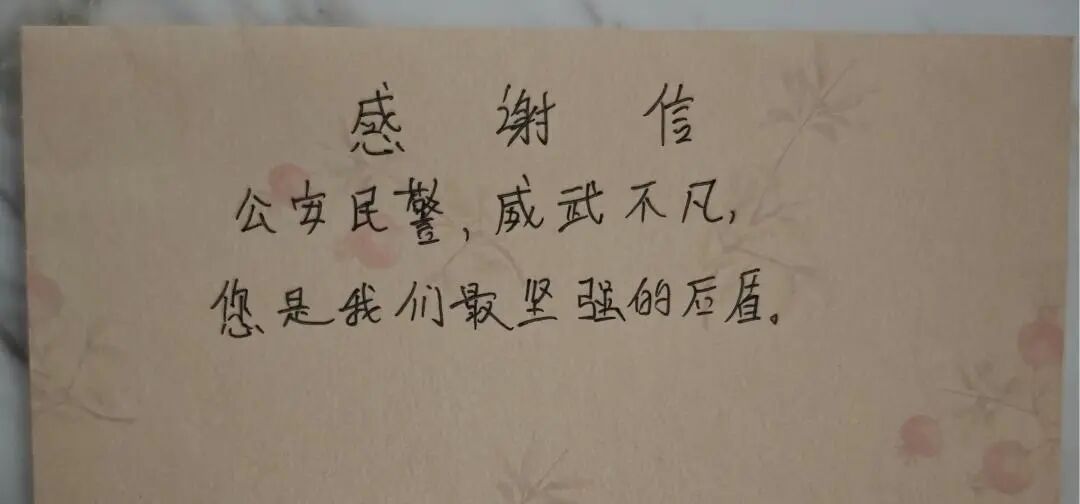 感谢信
公安民警,威武不凡,
您是我们最坚强的后盾。